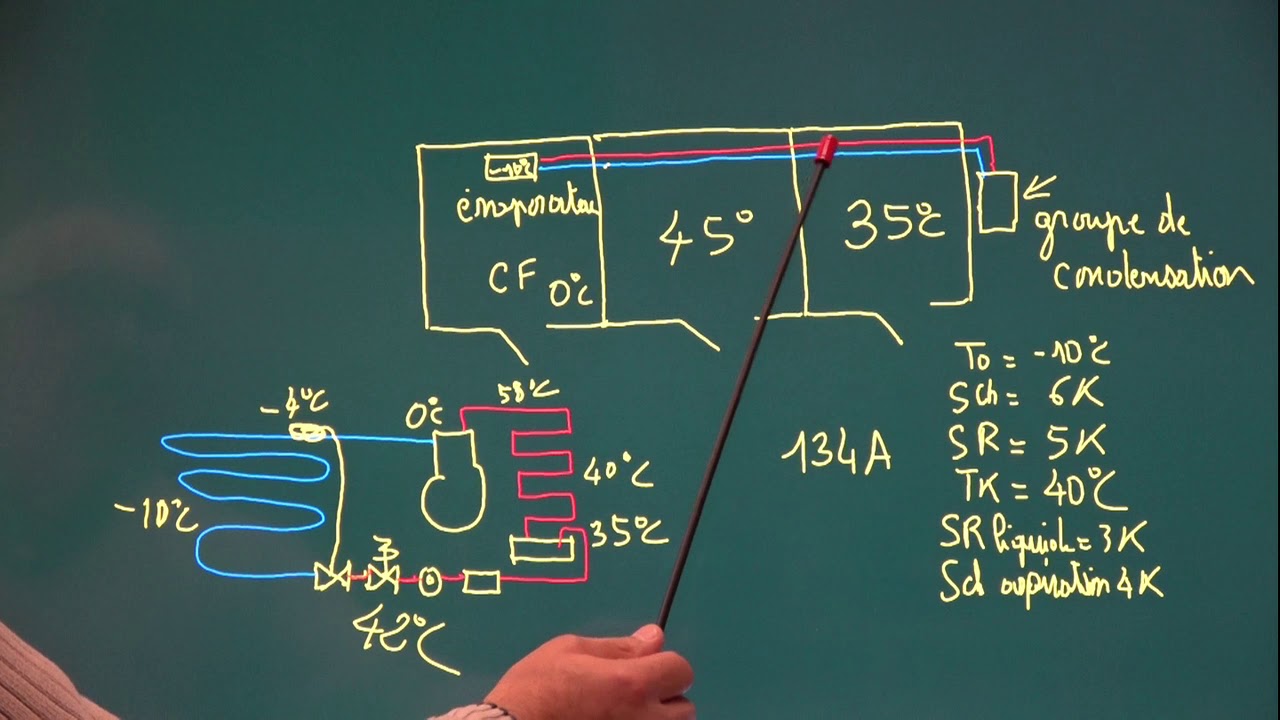 -10°c
évaporateu
CF 0°c
45°
35°c
groupe de
condensation
To = -10°c
Sch = 6K
SR = 5K
TK = 40°C
SR liquide = 3K
Sch aspiration 4K
134A
-4°c
0°c
58°C
40°C
35°C
-10°C
42°C